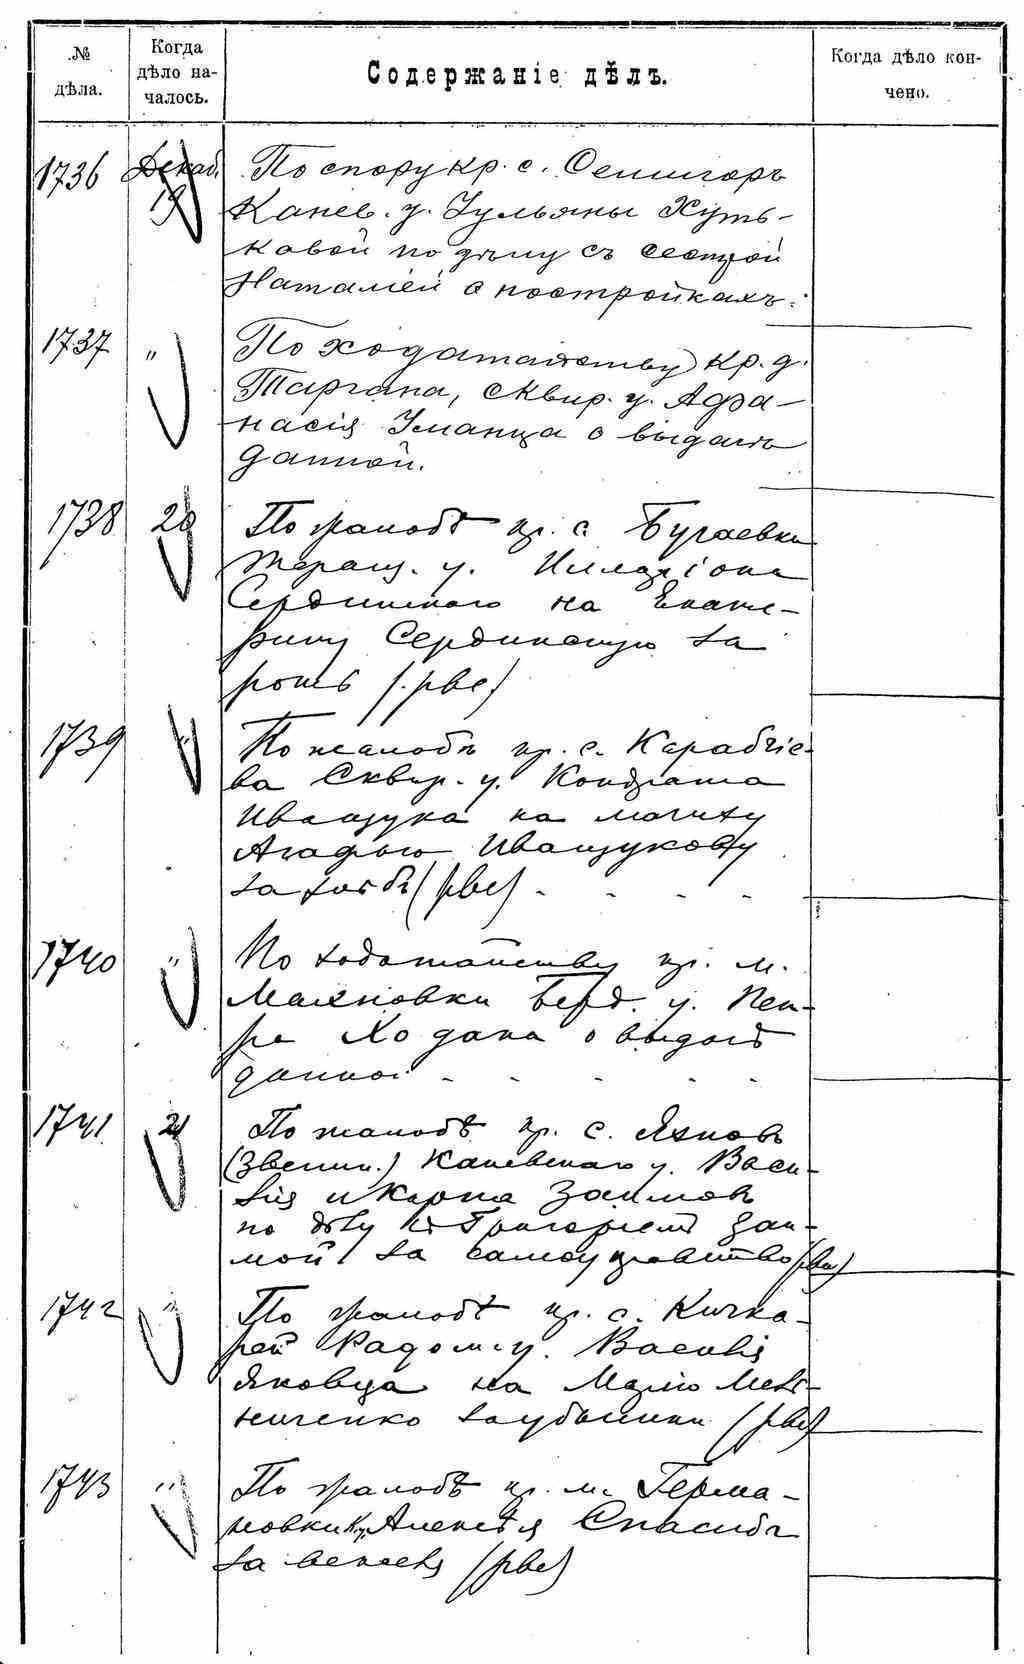 № дѣла.
Когда дѣло началось.
Содержаніе дѣлъ.
Когда дѣло кончено.
1736 Декаб. 19
По спору кр. с. Сенигоръ
Канев. у. Ульяны Хуть-
ковой по дѣлу съ сестрой
Наталіей о постройкахъ.
1737 "
По ходатайству кр. д.
Таргана, Сквир. у. Афа-
насія Уманца о выдачѣ
данной.
1738 20
По жалобѣ кр. с. Бугаевки
Таращ. у. Илларіона
Сердинскаго на Екате-
рину Сердинскую за
(рвс)
1739 "
По жалобѣ кр. с. Карабчіе-
ва Сквир. у. Кондрата
Иващука на мачиху
Агафью Иващукову
за (рвс)
1740 "
По ходатайству кр. м.
Махновки Берд. у. Пет-
ра Ходака о выдачѣ
данной
1741 21
По жалобѣ кр. с. Яхновъ
(Звениг.) Каневскаго у. Васи-
лія и Карпа Заимовъ
по дѣлу съ Григоріемъ
за самоуправство (рвс)
1742 "
По жалобѣ кр. с. Кички-
рей Радом. у. Василія
Яковца на Марію Мель-
ниченко за убытки (рвс)
1743 "
По жалобѣ кр. м. Герма-
новки К. у. Алексѣя Спасиба
за векселя (рвс)